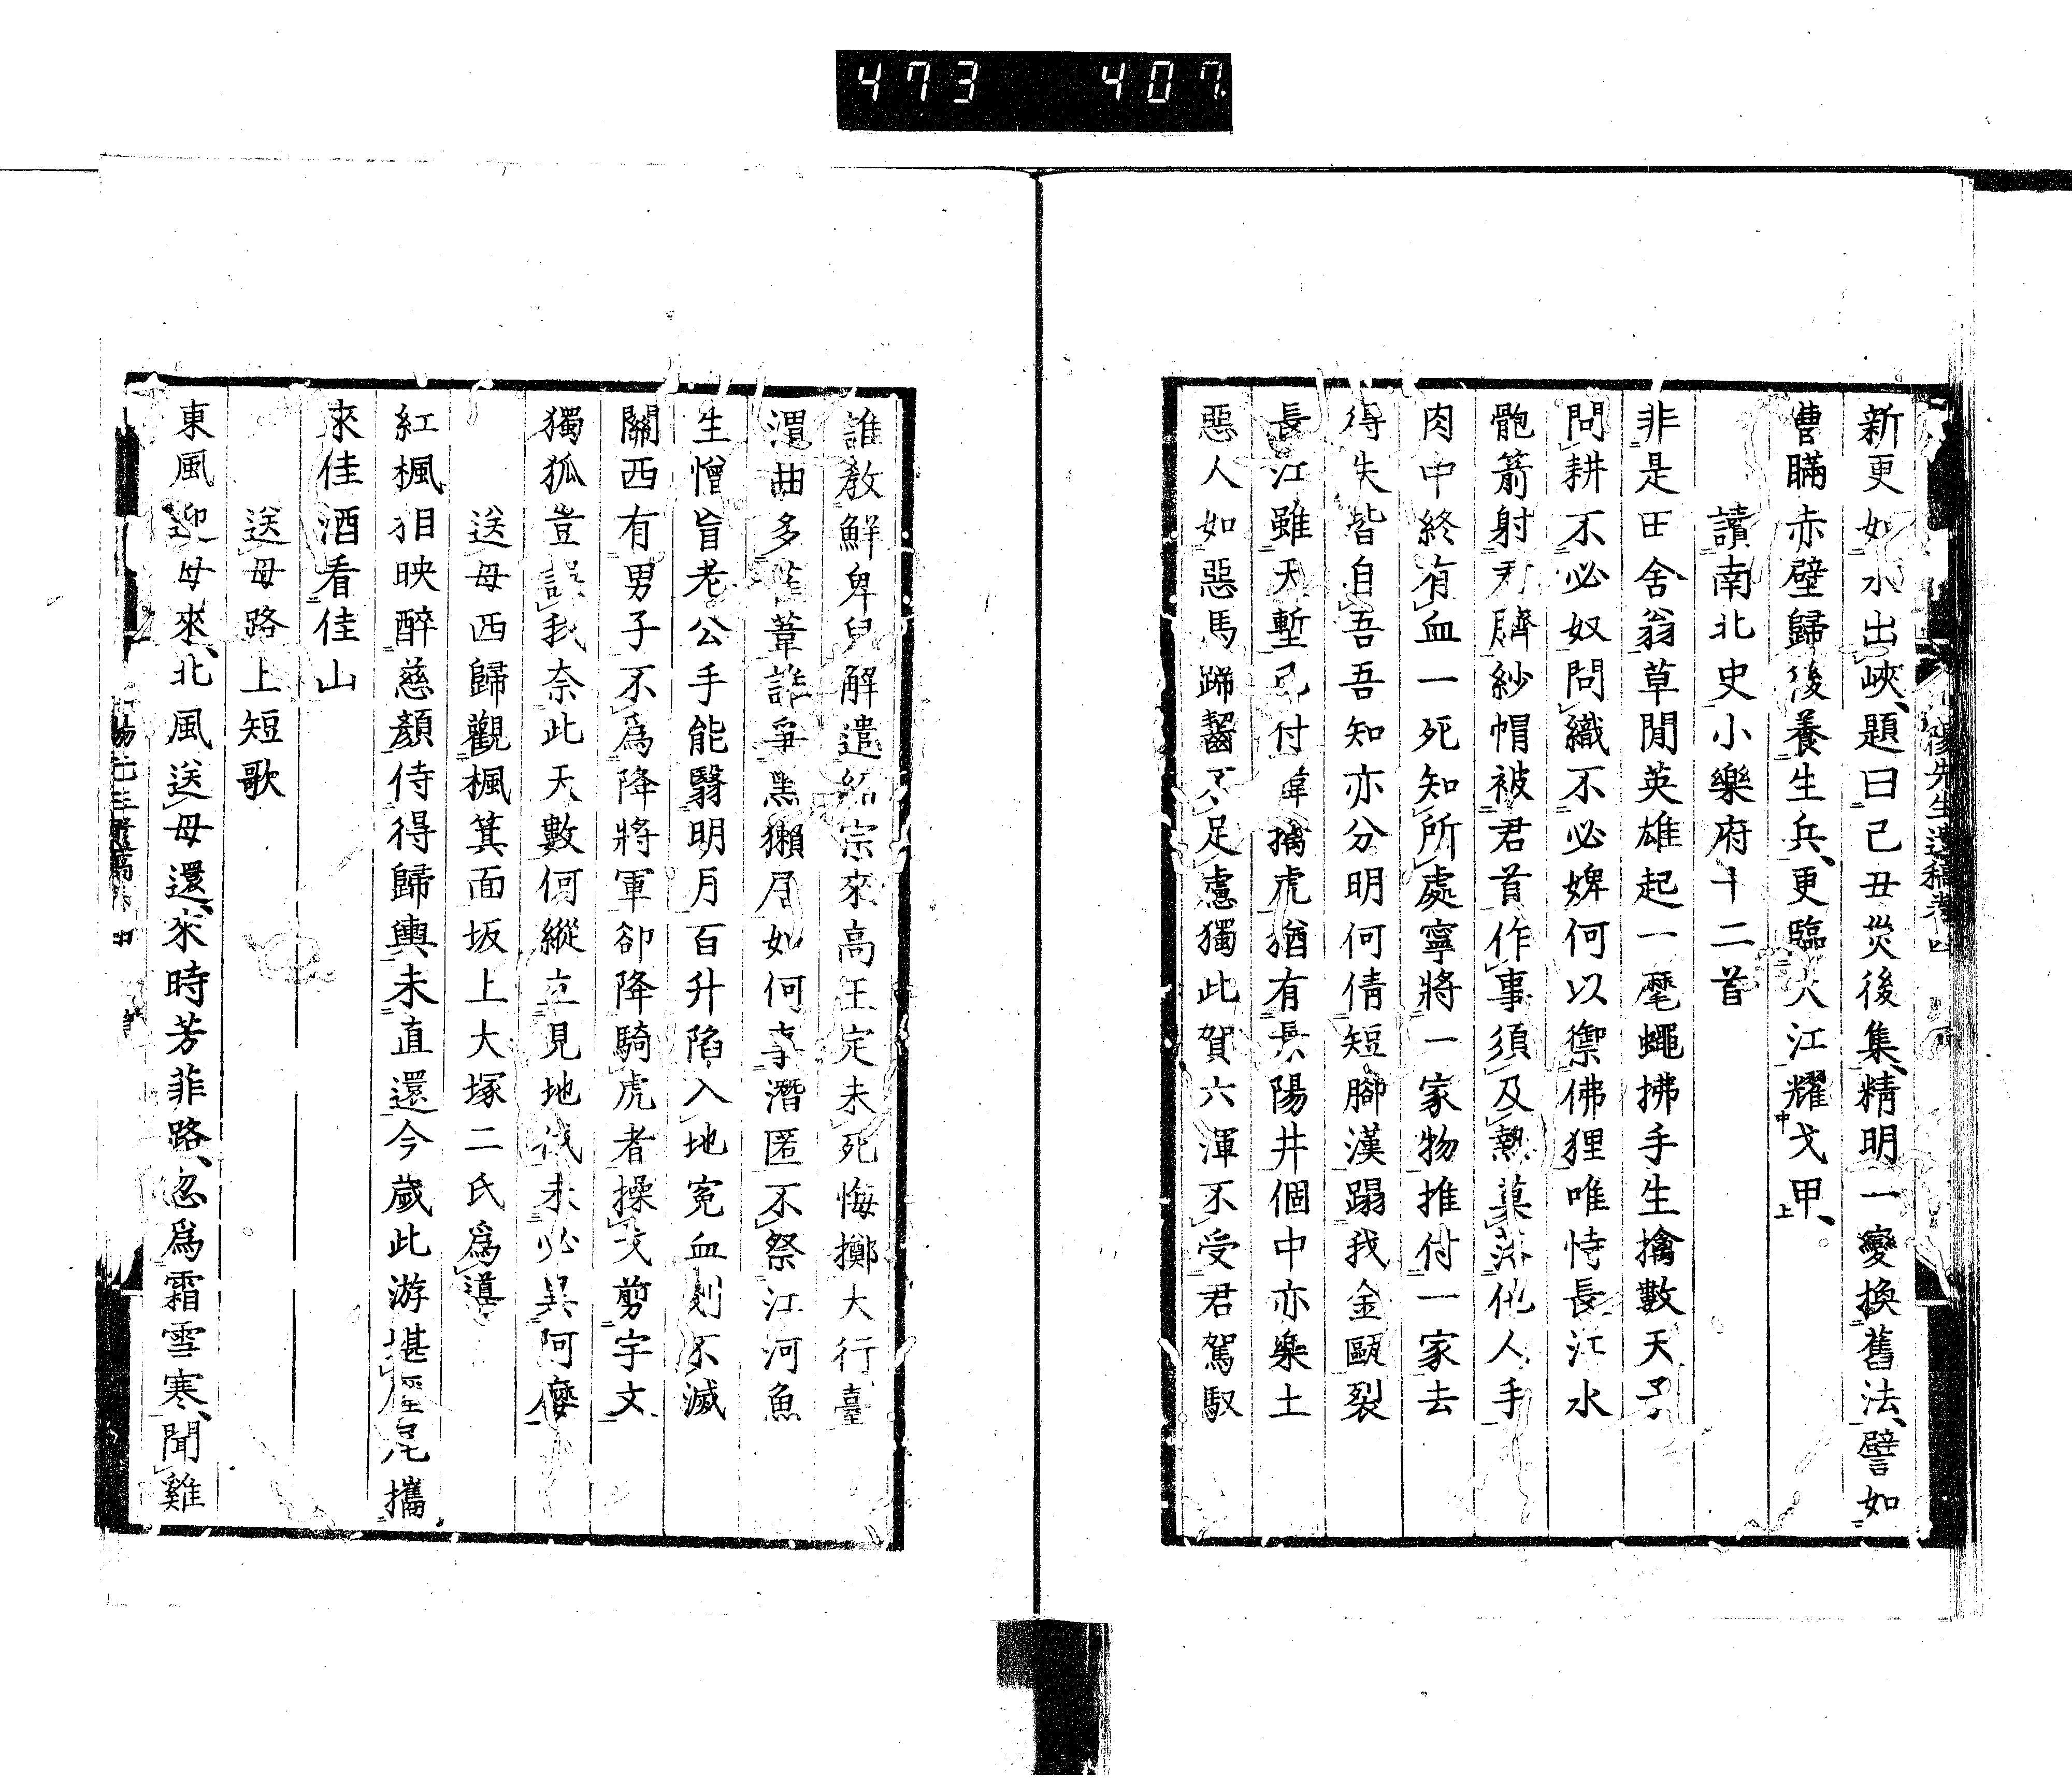 473 407
新更如水出峽、題曰己丑災後集、精明一變換舊法、譬如
曹瞞赤壁歸後養生兵、更臨大江耀中戈甲上、
讀南北史小樂府十二首
非是田舍翁草閒英雄起一麾蠅拂手生擒數天子
問耕不必奴問織不必婢何以禦佛狸唯恃長江水
骲箭射君臍紗帽被君首作事須及熱菓落他人手
肉中終有血一死知所處寧將一家物推付一家去
得失皆自吾吾知亦分明何倩短腳漢蹋我金甌裂
長江雖天塹已付韓擒虎猶有長陽井個中亦樂土
惡人如惡馬蹄齧不足慮獨此賀六渾不受君駕馭
誰教鮮卑兒解遣紹宗來高王定未死悔擲大行臺
渭曲多葦誰爭黑獺肩如何事潛匿不祭江河魚
生憎盲老公手能翳明月百升陷入地冤血剗不滅
關西有男子不爲降將軍卻降騎虎者操戈剪宇文
獨狐豈誤我奈此天數何縱立見地伐未必異阿𡡉
送母西歸觀楓箕面坂上大塚二氏爲導
紅楓相映醉慈顏侍得歸輿未直還今歲此游堪狂兄攜
來佳酒看佳山
送母路上短歌
東風迎母來、北風送母還、來時芳菲路、忽爲霜雪寒、聞雞